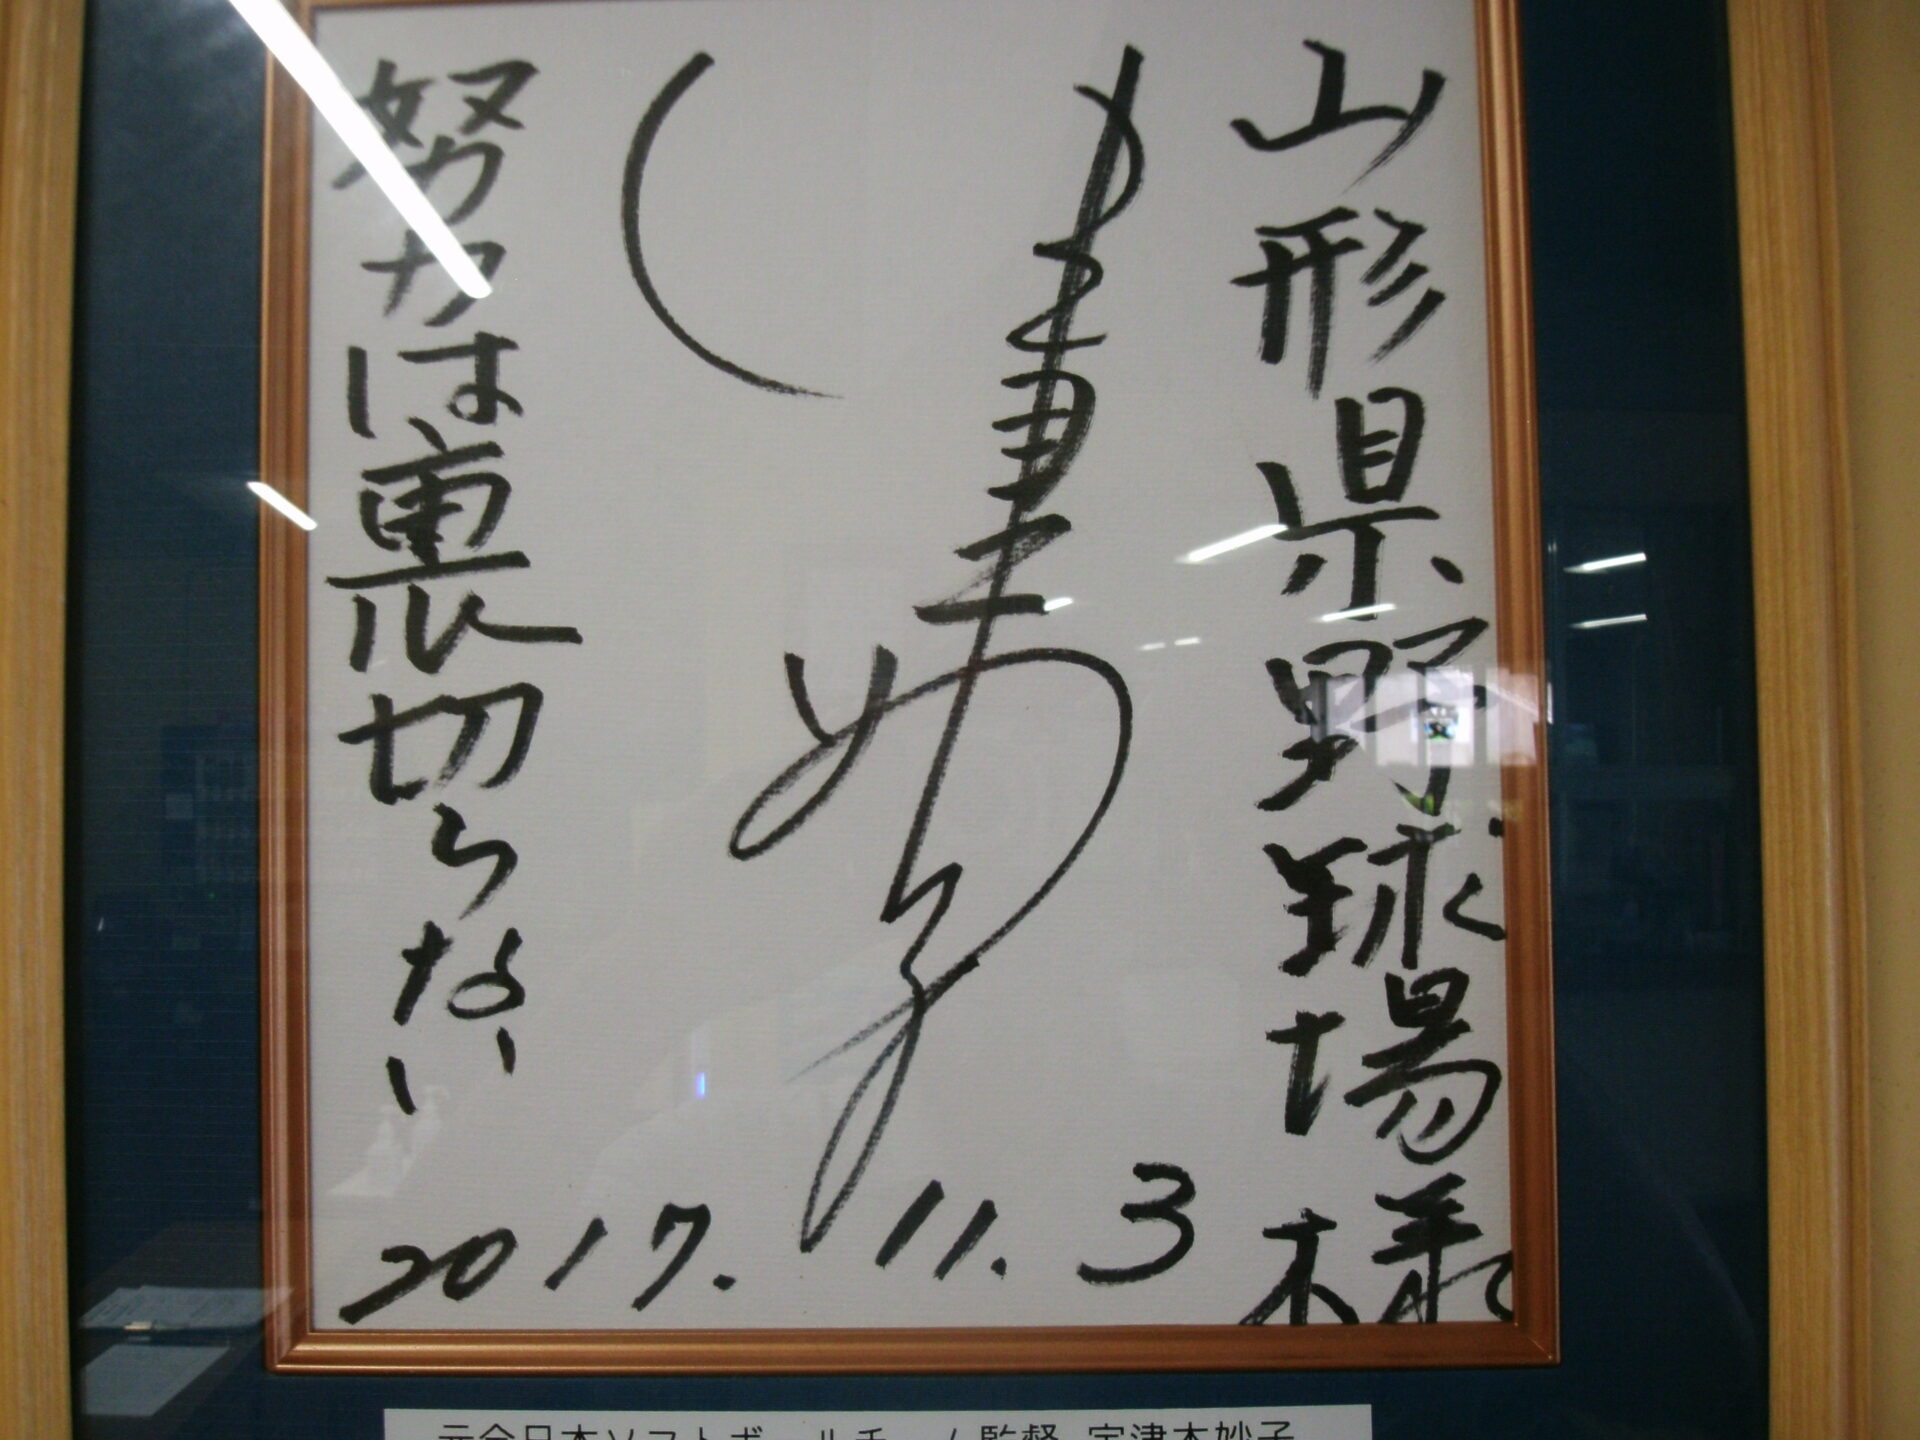 山形県野球場様
努力は裏切らない
2017.11.3
元全日本ソフトボールチーム監督 宇津木妙子